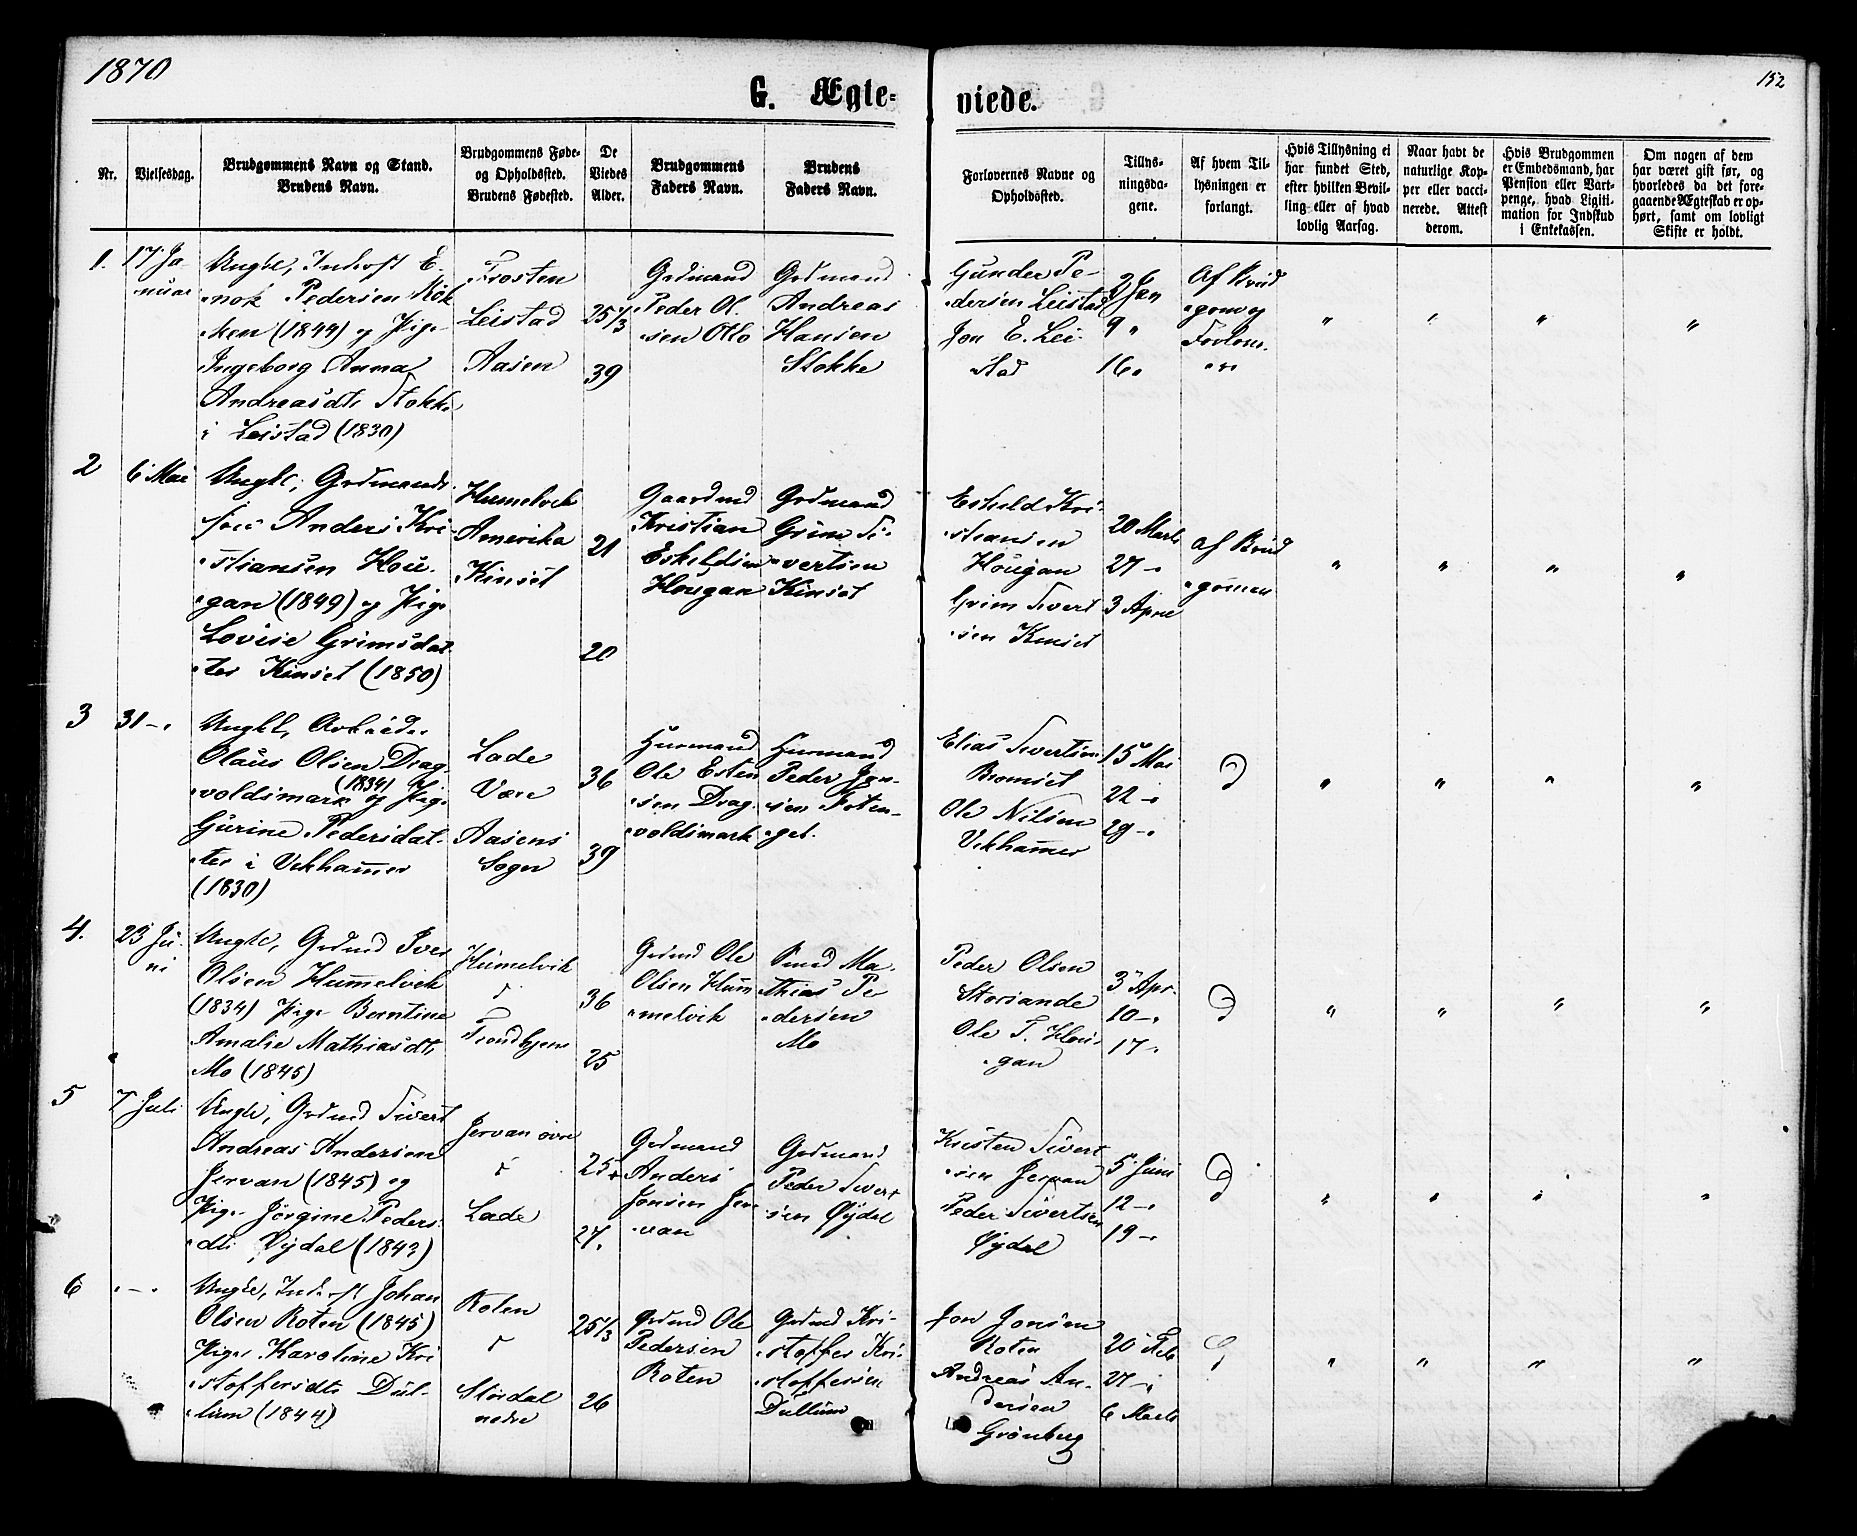 1870
152
G. Ægte-
viede.
Nr.
Vielsesdag.
Brudgommens Navn og Stand.
Brudens Navn.
Brudgommens Føde-
og Opholdsted.
Brudens Fødested.
De
Viedes
Alder.
Brudgommens
Faders Navn.
Brudens
Faders Navn.
Forlovernes Navne og
Opholdsted.
Tillys-
ningsda-
gene.
Af hvem Til-
lysningen er
forlangt.
Hvis Tillysning ei
har fundet Sted,
efter hvilken Bevil-
ling eller af hvad
lovlig Aarsag.
Naar havt de
naturlige Kop-
per eller vacci-
nerede. Attest
derom.
Hvis Brudgommen
er Embedsmand, har
Pension eller Vart-
penge, hvad Ligiti-
mation for Indskud
i Enkekassen.
Om nogen af dem
har været gift før, og
hvorledes da det fore-
gaaende Ægteskab er op-
hørt, samt om lovligt
Skifte er holdt.
1.
17 Ja-
nuar
Ungkl, Inderst E-
nok Pedersen
(1849) og Pige
Ingeborg Anna
Andreasdtr Stokke
i Leistad (1830)
Frosten
Leistad
Aasen
25 1/3
39
Grdmand
Peder Ol-
sen Otlo
Grdmand
Andreas
Hansen
Stokke
Gunder Pe-
dersen Leistad
Jon E. Lei-
stad
2 Jan
9 "
16.
Af Brud
gom og
" " " "
2
6 Mai
Ungkl, Grdmands
søn Anders Kri-
stiansen Hou-
gan (1849) og Pige
Lovise Grimsdat
ter Kinset (1850)
Humelvik
Amerika
Kinset
21
20
Gaardmd
Kristian
Eskeldsen
Hougan
Grdmand
Grim Si-
vertsen
Kinset
Eskeld Kri-
stiansen
Hougan
Grim Sivert
sen Kinset
20 Marts
27 -
3 April
af Brud
gomen
" " " "
3
31 -.
Ungkl, Arbeider
Olaus Olsen Drag
voldsmark (1834) og Pige
Gurine Pedersdat-
ter i Vikhammer
(1830)
Lade
Være
Aasens
Sogn
36
39
Husmand
Ole Esten
sen Drag-
voldsmark
Husmand
Peder Jon-
sen Foten-
get.
Elias Sivertsen
Bromset
Ole Nilsen
Vikhammer
15 Mai
22 -.
29 -.
D
" " " "
4.
23 Ju-
ni
Ungkl, Grdmd Iver
Olsen Hummelvik
(1834) Pige Berntine
Amalie Mathiasdtr
Mo (1845)
Humelvik
Trondhjem
36
25
Grdmd Ole
Olsen Hum
melvik
Smed Ma-
thias Pe
dersen
Mo
Peder Olsen
Storsande
Ole T. Hou-
gan
3 Apr.
10 -.
17 -.
D
" " " "
5
7 Juli
Ungkl, Grdmd Sivert
Andreas Andersen
Jervan (1845) og
Pige Jørgine Peders
dtr Øydal (1843)
Jervan øvre
Lade
25
27.
Grdmand
Anders
Jonsen Jer
van
Grdmand
Peder Sivert
sen Øydal
Kristen Sivert
sen Jervan
Peder Sivertsen
Øydal
5 Juni
12 -.
19 -.
D
" " " "
6
. - .
Ungkl, Inderst Johan
Olsen Roten (1845)
Pige Karoline Kri
stoffersdtr Dul-
lum (1844)
Roten
Stordal
nedre
25 1/3
26
Grdmd Ole
Pedersen
Roten
Grdmd Kri-
stoffer Kri-
stoffersen
Dullum
Jon Jonsen
Roten
Andreas An-
dersen
Grønberg
20 Feb
27 -.
6 Marts
D
" " " "